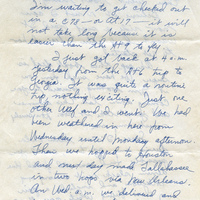 I'm waiting to get checked out
in a C78 – or AT17 – it will
not take long because it is
easier than the AT9 to fly.
I just got back at 4 a.m.
yesterday from the AT6 trip to
Georgia. It was quite a routine
trip nothing exciting. Just one
other WASP and I went. We had
been weathered in here from
Wednesday until Monday afternoon.
Then we hopped to Houston
and next day made Tallahassee
in two hops via New Orleans.
On Wed. a.m. we delivered and